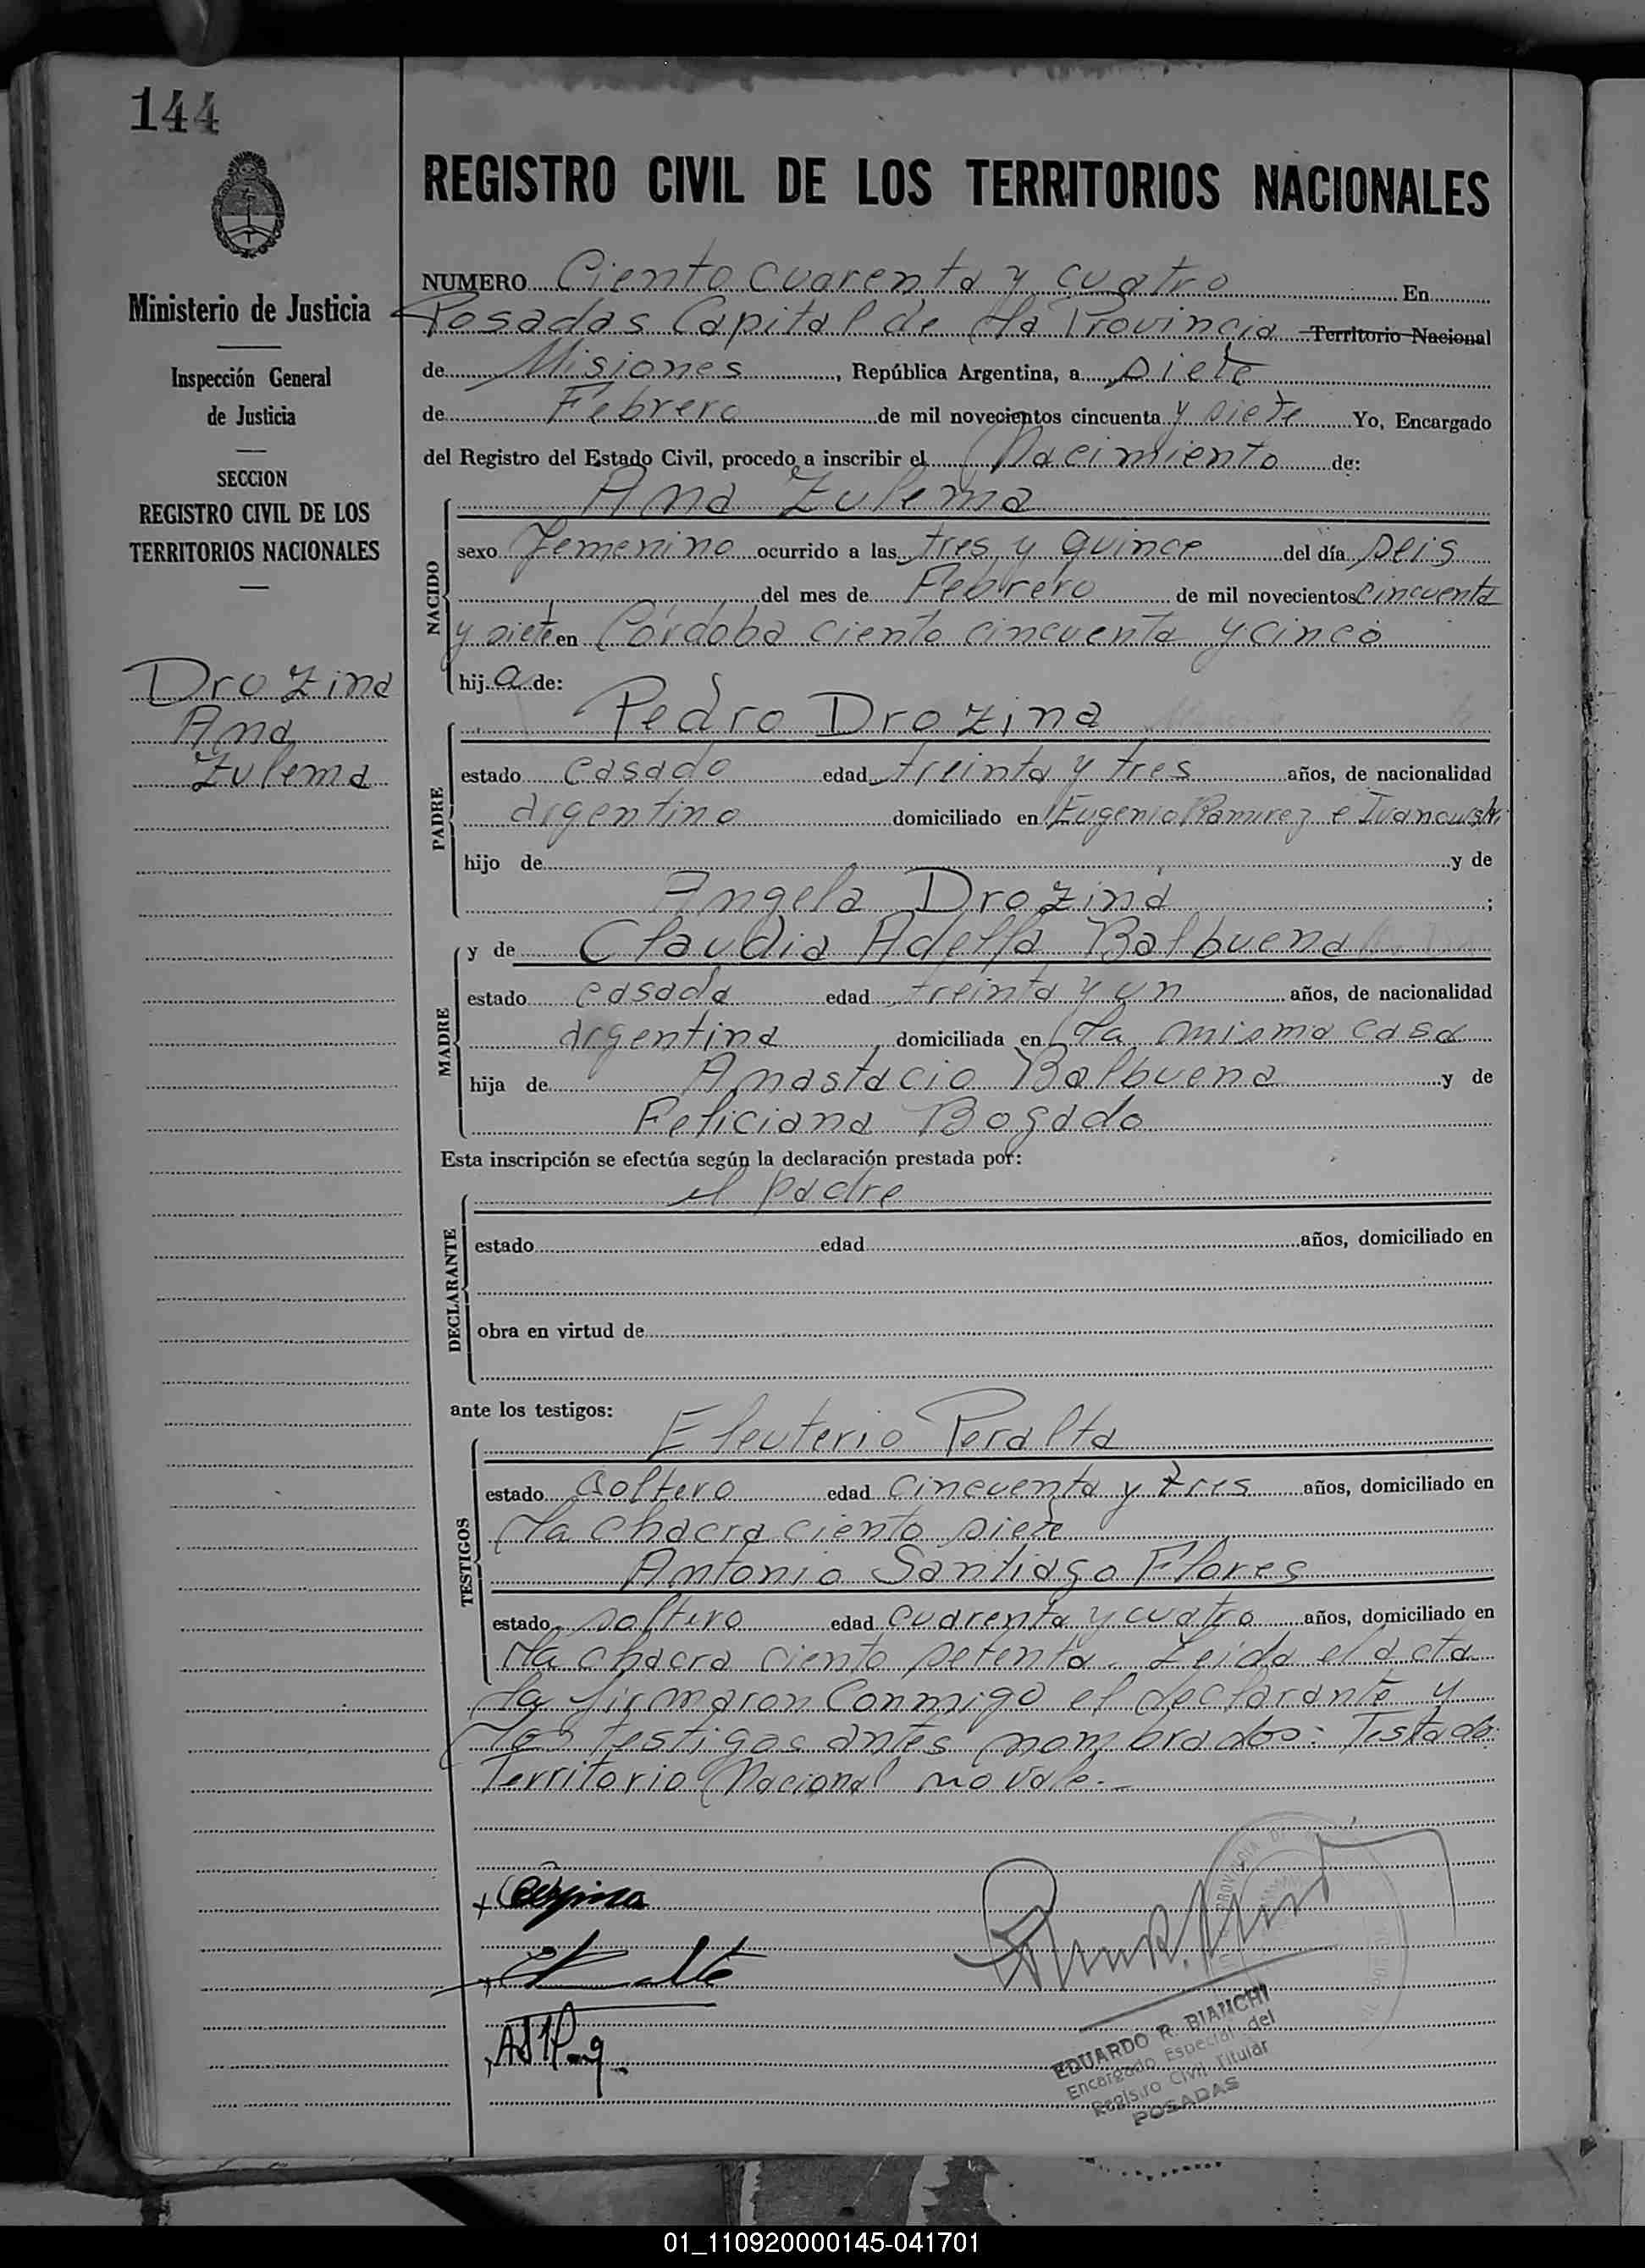 144
REGISTRO CIVIL DE LOS TERRITORIOS NACIONALES
Ministerio de Justicia
Inspección General
de Justicia
SECCION
REGISTRO CIVIL DE LOS
TERRITORIOS NACIONALES
Drozina
Ana
Zulema
NUMERO Ciento cuarenta y cuatro En
Posadas Capital de la Provincia Territorio Nacional
de Misiones, República Argentina, a siete
de Febrero de mil novecientos cincuenta y siete Yo, Encargado
del Registro del Estado Civil, procedo a inscribir el Nacimiento de:
NACIDO
Ana Zulema
sexo Femenino ocurrido a las tres y quince del día seis
del mes de Febrero de mil novecientos cincuenta
y siete en Córdoba ciento cincuenta y cinco
hija de:
PADRE
Pedro Drozina
estado casado edad treinta y tres años, de nacionalidad
argentino domiciliado en Eugenio Ramirez e Ivanowski
hijo de y de
Angela Drozina ;
MADRE
y de Claudia Adella Balbuena
estado casada edad treinta y un años, de nacionalidad
argentina, domiciliada en la misma casa
hija de Anastacio Balbuena y de
Feliciana Bogado
Esta inscripción se efectúa según la declaración prestada por:
DECLARANTE
el padre
estado edad años, domiciliado en
obra en virtud de
ante los testigos:
TESTIGOS
Eleuterio Peralta
estado soltero edad cincuenta y tres años, domiciliado en
la chacra ciento siete
Antonio Santiago Flores
estado soltero edad cuarenta y cuatro años, domiciliado en
la chacra ciento setenta. Leida el acta
la firmaron conmigo el declarante y
los testigos antes nombrados: Testado:
Territorio Nacional no vale.-
EDUARDO R. BIANCHI
Encargado Especial del
Registro Civil Titular
POSADAS
01_110920000145-041701